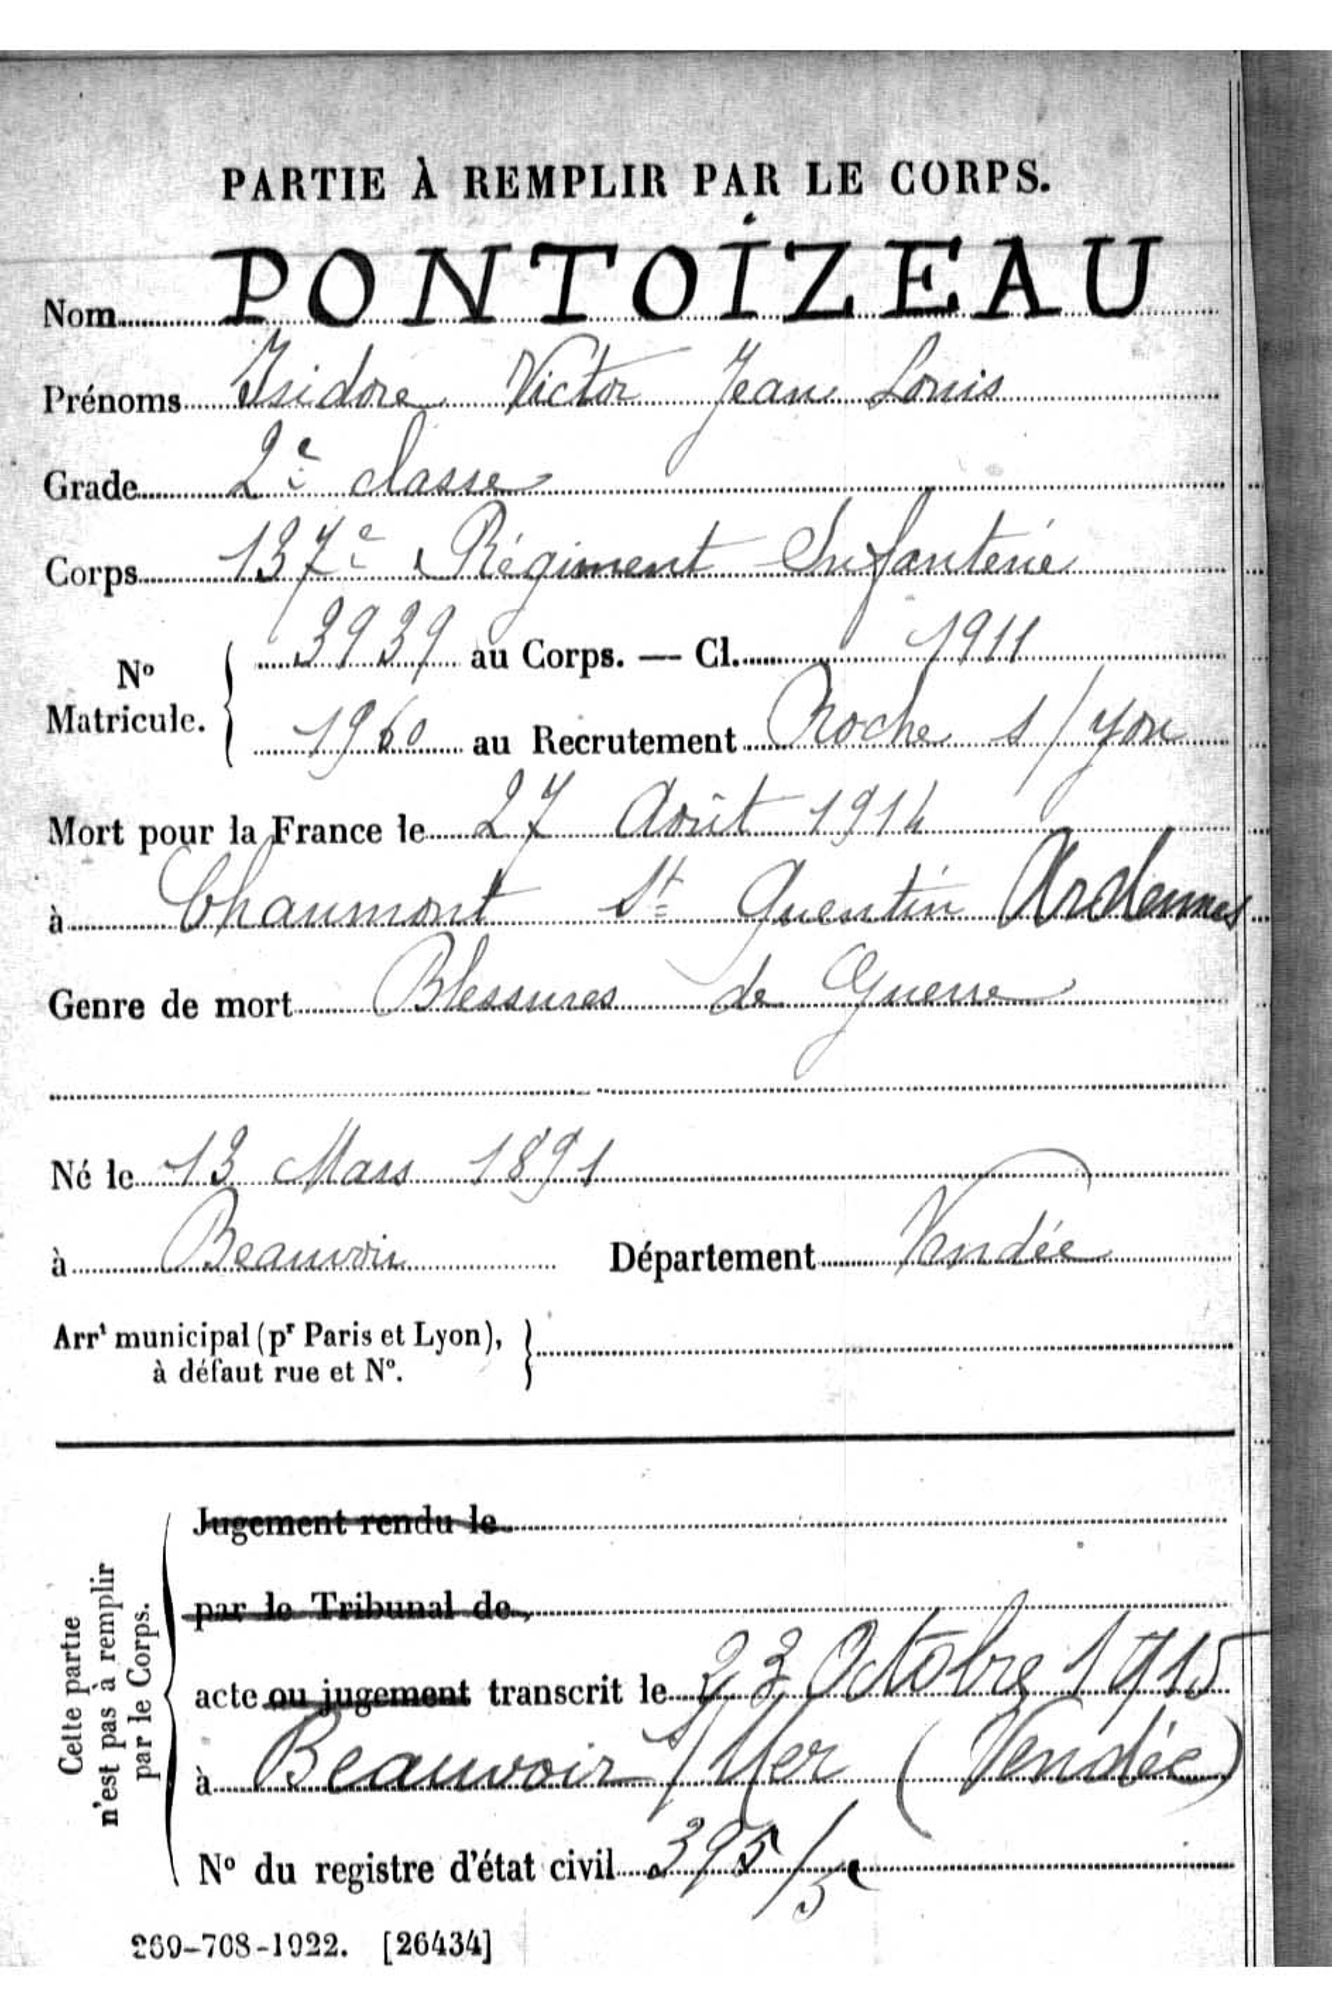 PARTIE À REMPLIR PAR LE CORPS.
Nom PONTOÏZEAU
Prénoms Isidore Victor Jean Louis
Grade 2e classe
Corps 137e Régiment Infanterie
No Matricule. { 3939 au Corps. — Cl. 1911
1960 au Recrutement Roche s/Yon
Mort pour la France le 27 Août 1914
à Chaumont St Quentin Ardennes
Genre de mort Blessures de Guerre
Né le 13 Mars 1891
à Beauvoir Département Vendée
Arrt municipal (pr Paris et Lyon), }
à défaut rue et No.
Cette partie
n'est pas à remplir
par le Corps.
Jugement rendu le
par le Tribunal de
acte ou jugement transcrit le 23 Octobre 1915
à Beauvoir s/Mer (Vendée)
No du registre d'état civil 395/5e
269-708-1922. [26434]